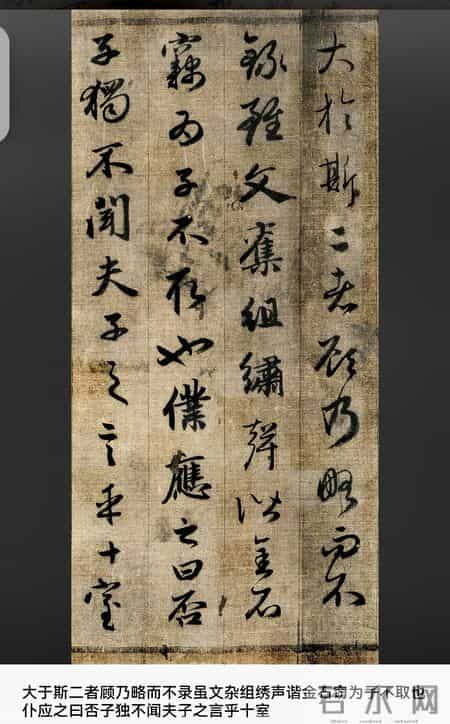 大於斯二者顧乃略而不
錄雖文雜組繡聲諧金石
竊為子不取也僕應之曰否
子獨不聞夫子之言乎十室
大于斯二者顾乃略而不录虽文杂组绣声谐金石窃为子不取也
仆应之曰否子独不闻夫子之言乎十室